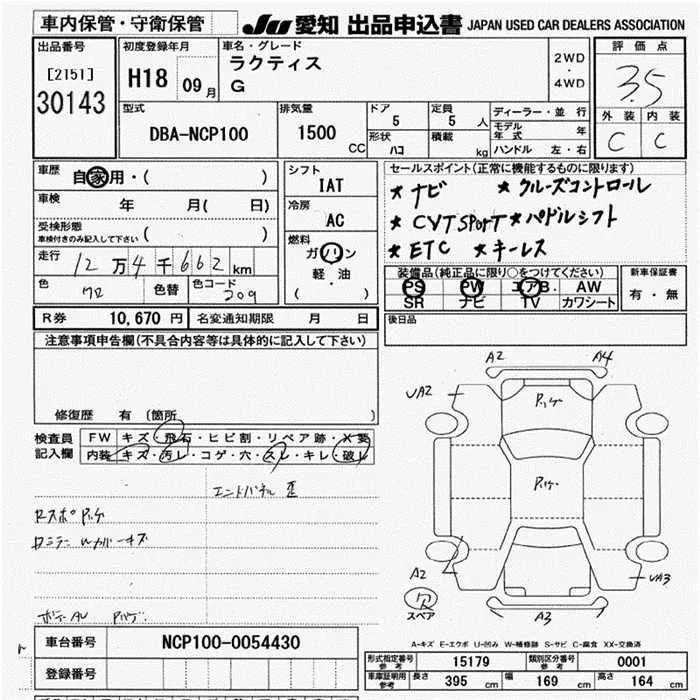 車内保管・守衛保管
JU 愛知 出品申込書 JAPAN USED CAR DEALERS ASSOCIATION
出品番号
[2151]
30143
初度登録年月
H18 09月
車名・グレード
ラクティス
G
2WD
・
4WD
評価点
3.5
外装 内装
C C
型式
DBA-NCP100
排気量
1500 CC
ドア
5
定員
5 人
形状
ハコ
積載
kg
ディーラー・並行
モデル年式 年
ハンドル 左・右
車歴
自家用・( )
車検
年 月( 日)
受検形態
車検付きのみ記入して下さい ( )
走行
12万4千662km
色
クロ
色替
色コード
209
シフト
IAT
冷房
AC
燃料
ガソリン
軽・油
( )
セールスポイント(正常に機能するものに限ります)
★ナビ ★クルーズコントロール
★CVTSPORT ★パドルシフト
★ETC ★キーレス
装備品(純正品に限り○をつけてください)
PS PW エアB. AW
SR ナビ TV カワシート
新車保証書
有・無
R券 10,670円 名変通知期限 月 日
後日品
注意事項申告欄(不具合内容等は具体的に記入して下さい)
修復歴 有 〔箇所 〕
検査員
記入欄
FW キズ・飛石・ヒビ割・リペア跡・X要
内装 キズ・汚レ・コゲ・穴・スレ・キレ・破レ
エンドパネル 歪
A2 A4
UA2
A2
UA3
A3
スペア
A-キズ E-エクボ U-凹み W-補修跡 S-サビ C-腐食 XX-交換済
車台番号 NCP100-0054430
登録番号
形式指定番号 参考 15179 類別区分番号 参考 0001
車庫証明用 参考 長さ 395 cm 幅 169 cm 高さ 164 cm